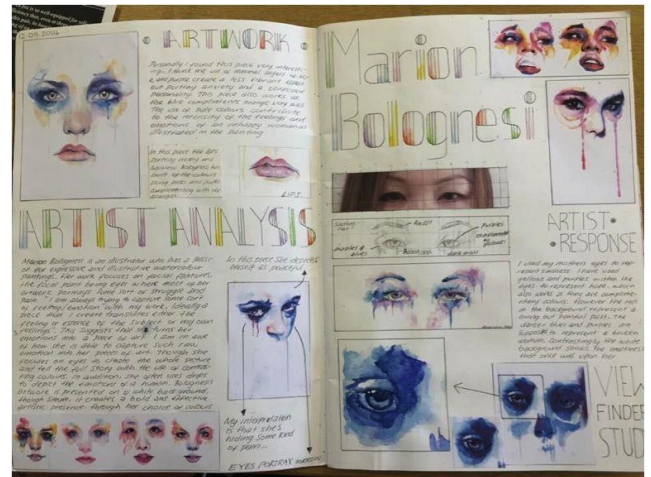 ARTWORK
Personally I found this piece very interesti-
ng. I think the use of minimal layers of
and purple create a less vibrant effect
but portray anxiety and a confused
personality. This piece also works as
the blue compliments orange very well.
The use of pure colours contribute
to the intensity of the feelings and
emotions of an unhappy woman as
illustrated in the painting
In this piece the lips
portray anxiety and
sadness. Bolognesi has
built up the colours
using pinks and
complimenting with the
oranges.
LIPS...
ARTIST ANALYSIS
Marion Bolognesi is an illustrator who has a passi-
on for expressive and illustrative watercolour
paintings. Her work focuses on facial features,
the focal point being eyes where most of her
artwork portrays some sort of struggle and
pain. "I am always trying to capture some sort
of feeling/emotion with my work. Ideally a
piece that I create translates either the
feeling or essence of the subject or my own
feelings". This suggests that she turns her
emotions into a piece of art. I am in awe
of how she is able to capture such raw
emotion into her pieces of art. Though she
focuses on eyes to create the whole picture
and tell the full story with the use of contras-
ting colours. In addition, she often uses eyes
to depict the emotions of a human. Bolognesi's
artwork is presented on a white background,
though simple, it creates a bold and effective
artistic presence through her choice of colours
In this piece she depicts
herself as
My interpretation
is that she's
hiding some kind
of pain...
EYES PORTRAY
Marion
Bolognesi
Purples
ARTIST
RESPONSE
I used my mothers eyes to rep-
resent sadness. I have used
yellows and purples within the
eyes to represent hope, which
also works as they are complime-
ntary colours. However the red
in the background represent a
loving but painful past. The
darker blues and purples are
supposed to represent a broken
woman. Contrastingly the white
background shows the emotions
that
VIEW
FINDER
STUD